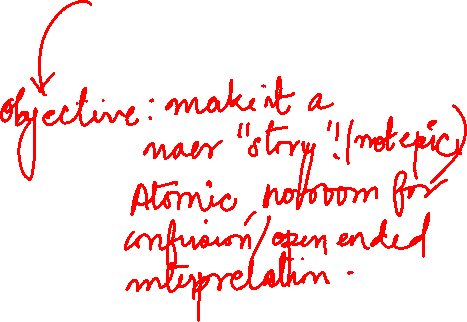 Objective: make it a
naer "story"! (not epic)
Atomic, no room for
confusion/open ended
interpretation.